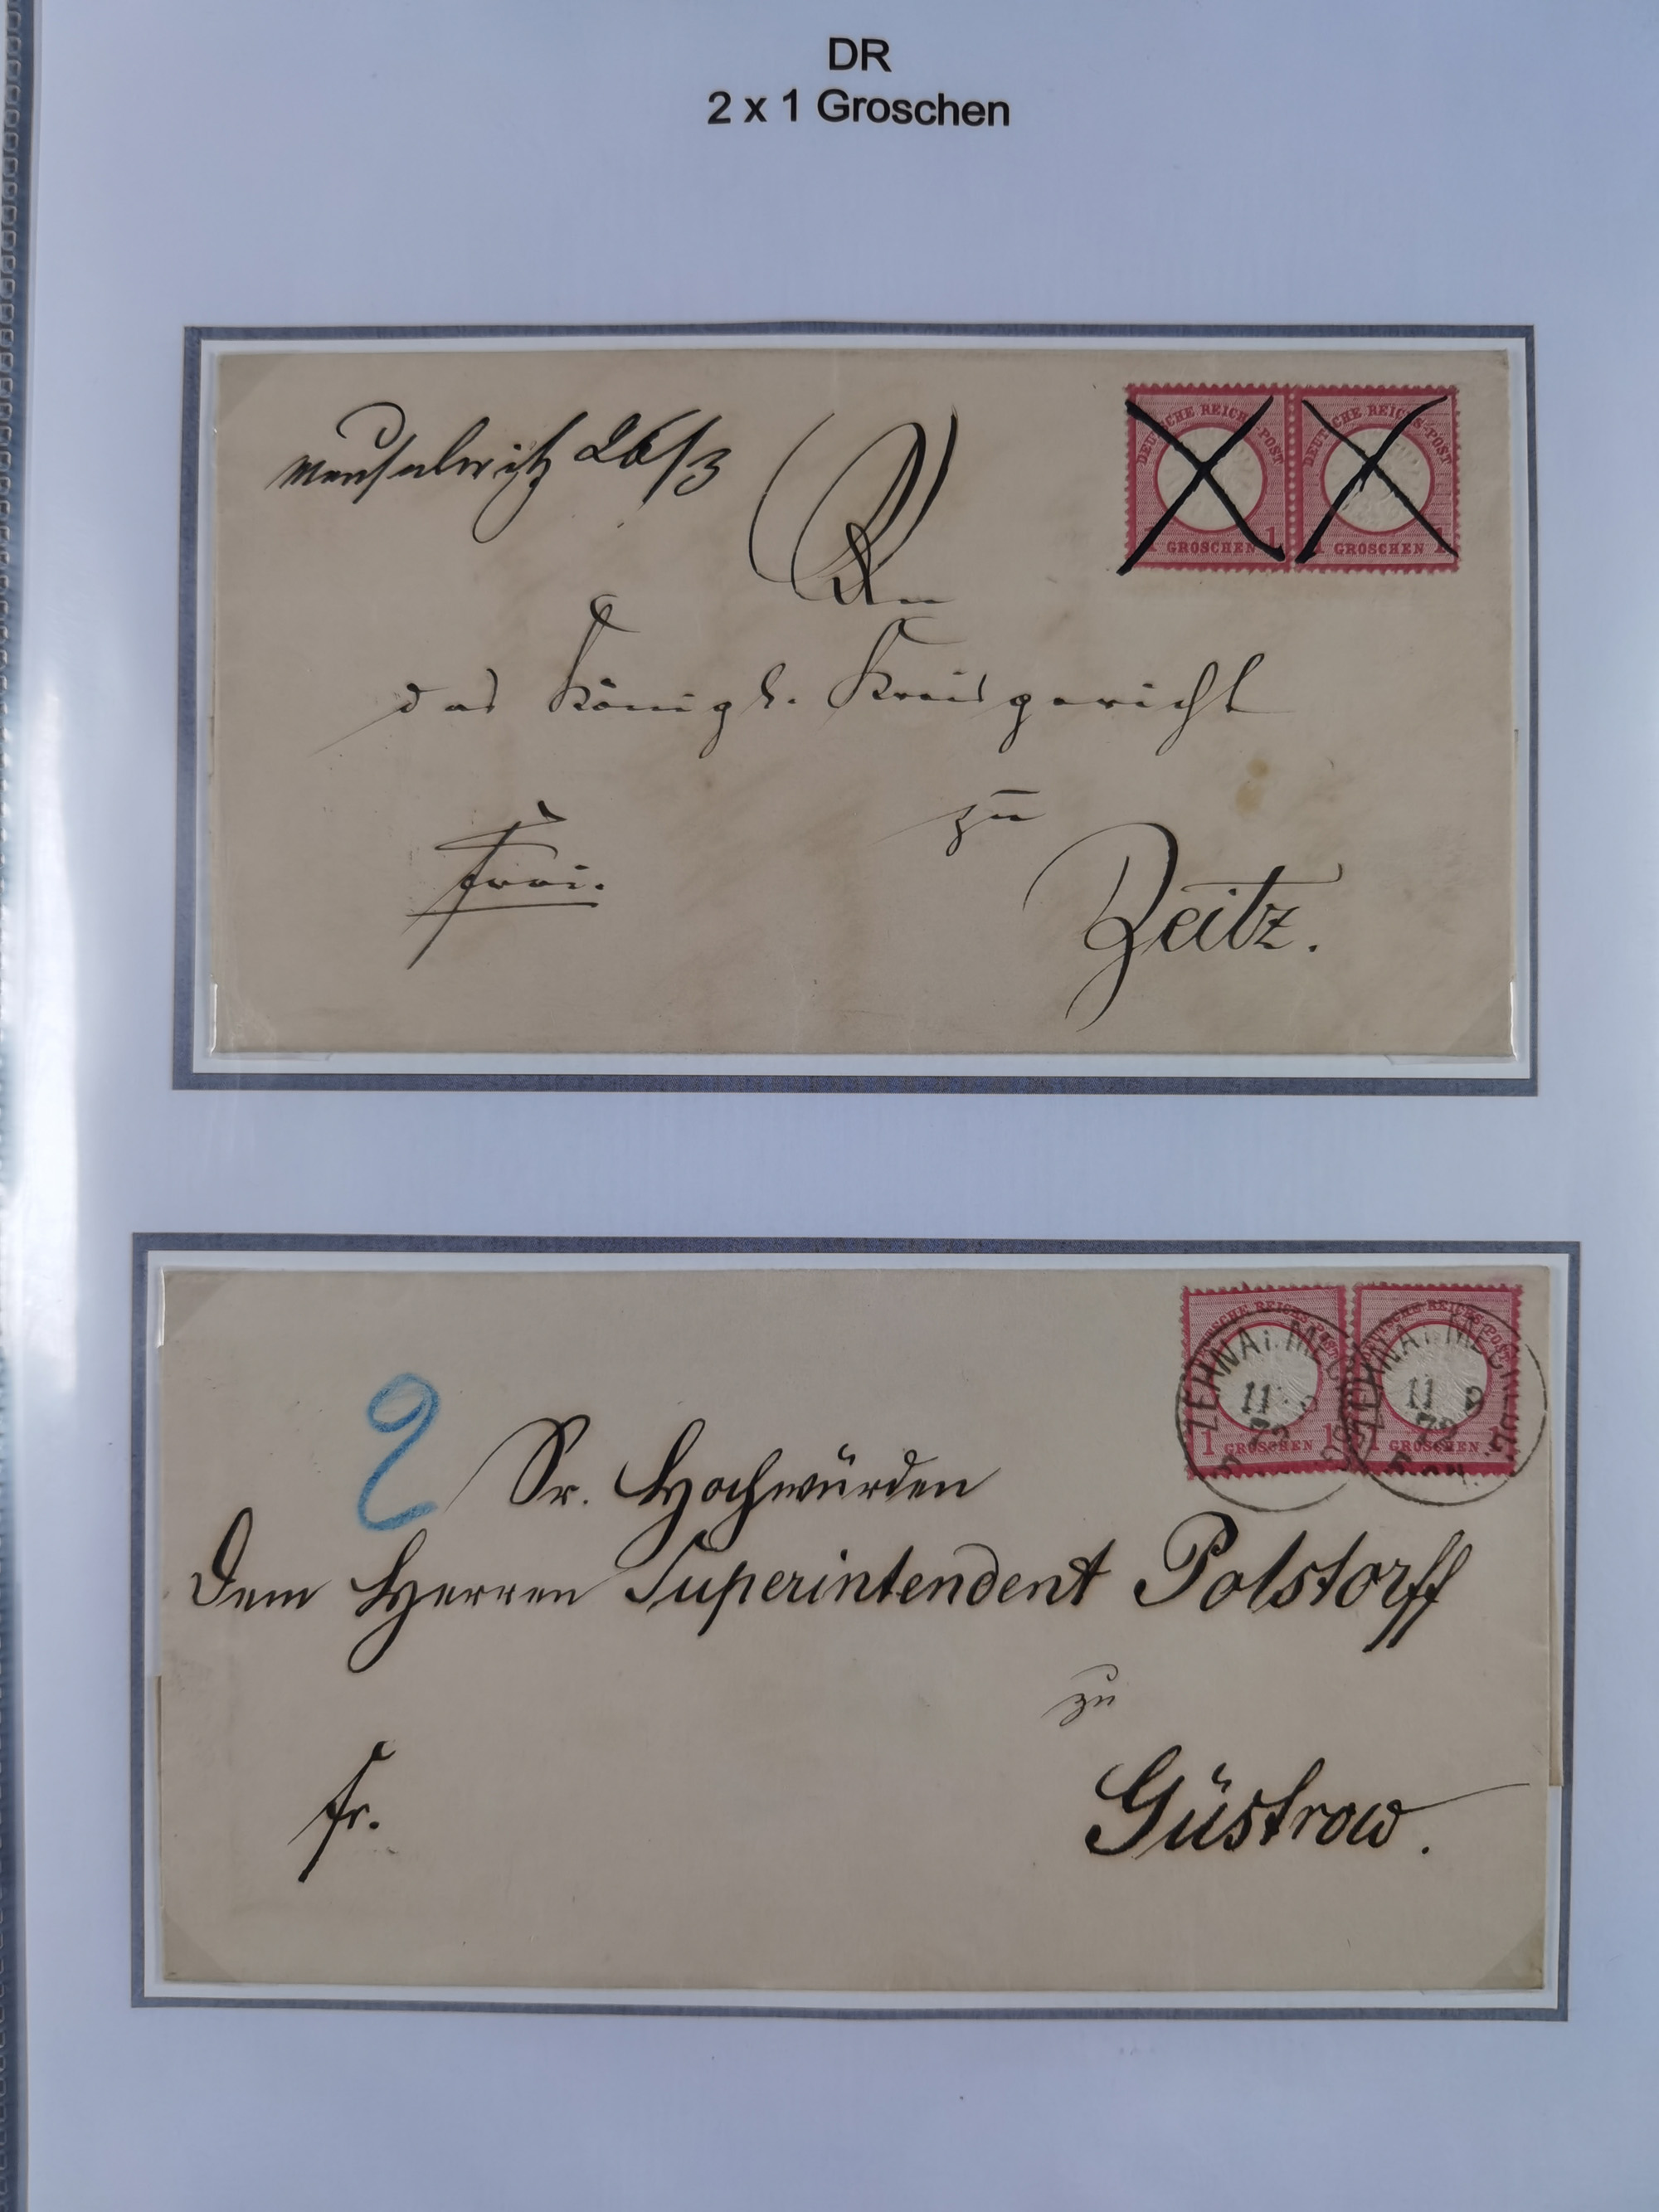 DR
2 x 1 Groschen
Meuselwitz 26/3
DEUTSCHE REICHS-POST
1 GROSCHEN 1
DEUTSCHE REICHS-POST
1 GROSCHEN 1
An
das Königl. Kreisgericht
zu
Frei.
Zeitz.
DEUTSCHE REICHS-POST
1 GROSCHEN 1
DEUTSCHE REICHS-POST
1 GROSCHEN 1
ZEHNA i. MECK
11 9
72
ZEHNA i. MECK
11 9
72
2
Sr. Hochwürden
Dem Herren Superintendent Polstorff
zu
fr.
Güstrow.